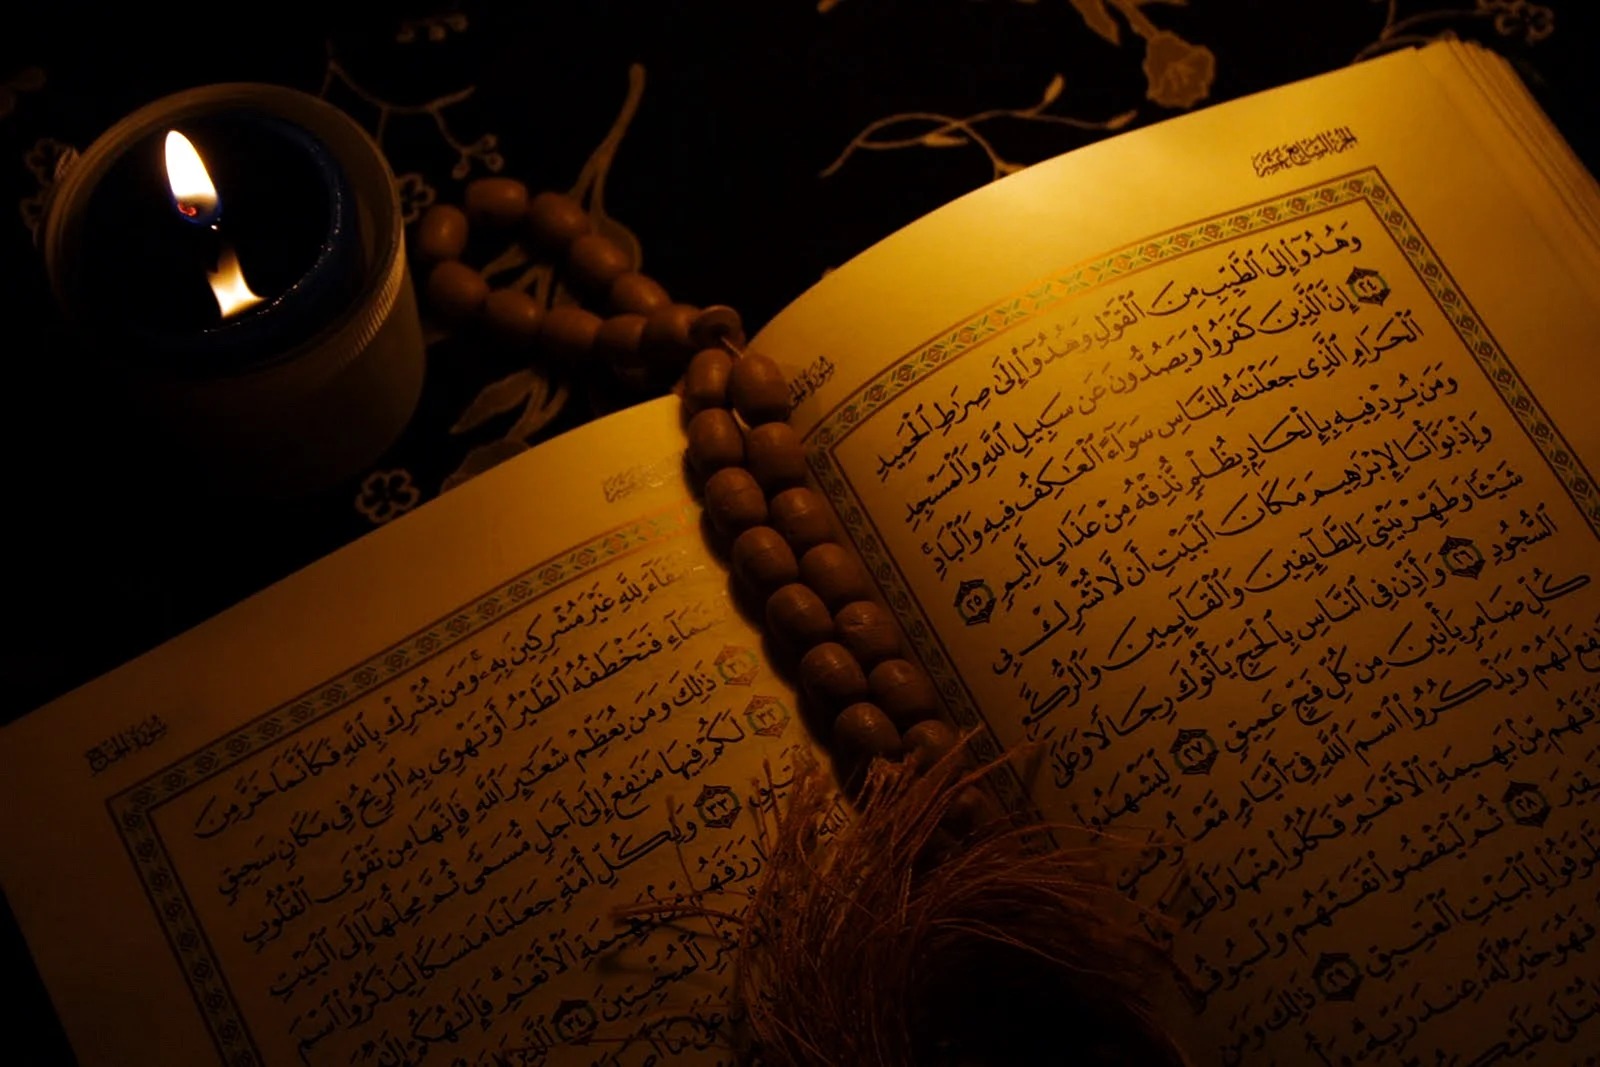 الجزء السابع عشر
وَهُدُوٓاْ إِلَى ٱلطَّيِّبِ مِنَ ٱلْقَوْلِ وَهُدُوٓاْ إِلَىٰ صِرَٰطِ ٱلْحَمِيدِ
٢٤ إِنَّ ٱلَّذِينَ كَفَرُواْ وَيَصُدُّونَ عَن سَبِيلِ ٱللَّهِ وَٱلْمَسْجِدِ
ٱلْحَرَامِ ٱلَّذِى جَعَلْنَٰهُ لِلنَّاسِ سَوَآءً ٱلْعَٰكِفُ فِيهِ وَٱلْبَادِ
وَمَن يُرِدْ فِيهِ بِإِلْحَادٍۭ بِظُلْمٍ نُّذِقْهُ مِنْ عَذَابٍ أَلِيمٍ ٢٥
وَإِذْ بَوَّأْنَا لِإِبْرَٰهِيمَ مَكَانَ ٱلْبَيْتِ أَن لَّا تُشْرِكْ بِى
شَيْـًٔا وَطَهِّرْ بَيْتِىَ لِلطَّآئِفِينَ وَٱلْقَآئِمِينَ وَٱلرُّكَّعِ
ٱلسُّجُودِ ٢٦ وَأَذِّن فِى ٱلنَّاسِ بِٱلْحَجِّ يَأْتُوكَ رِجَالًا وَعَلَىٰ
كُلِّ ضَامِرٍ يَأْتِينَ مِن كُلِّ فَجٍّ عَمِيقٍ ٢٧ لِّيَشْهَدُواْ
لَهُمْ وَيَذْكُرُواْ ٱسْمَ ٱللَّهِ فِىٓ أَيَّامٍ مَّعْلُومَٰتٍ
مِّنۢ بَهِيمَةِ ٱلْأَنْعَٰمِ فَكُلُواْ مِنْهَا
٢٨ ثُمَّ لْيَقْضُواْ تَفَثَهُمْ وَلْيُوفُواْ
بِٱلْبَيْتِ ٱلْعَتِيقِ ٢٩ ذَٰلِكَ وَمَن
فَهُوَ خَيْرٌ لَّهُۥ عِندَ رَبِّهِۦ
سورة الحج
لِلَّهِ غَيْرَ مُشْرِكِينَ بِهِۦ وَمَن يُشْرِكْ بِٱللَّهِ فَكَأَنَّمَا خَرَّ مِنَ
فَتَخْطَفُهُ ٱلطَّيْرُ أَوْ تَهْوِى بِهِ ٱلرِّيحُ فِى مَكَانٍ سَحِيقٍ
٣١ ذَٰلِكَ وَمَن يُعَظِّمْ شَعَٰٓئِرَ ٱللَّهِ فَإِنَّهَا مِن تَقْوَى ٱلْقُلُوبِ
٣٢ لَكُمْ فِيهَا مَنَٰفِعُ إِلَىٰٓ أَجَلٍ مُّسَمًّى ثُمَّ مَحِلُّهَآ إِلَى ٱلْبَيْتِ
٣٣ وَلِكُلِّ أُمَّةٍ جَعَلْنَا مَنسَكًا لِّيَذْكُرُواْ ٱسْمَ
بَهِيمَةِ ٱلْأَنْعَٰمِ فَإِلَٰهُكُمْ
ٱلْمُخْبِتِينَ ٣٤ ٱلَّذِينَ